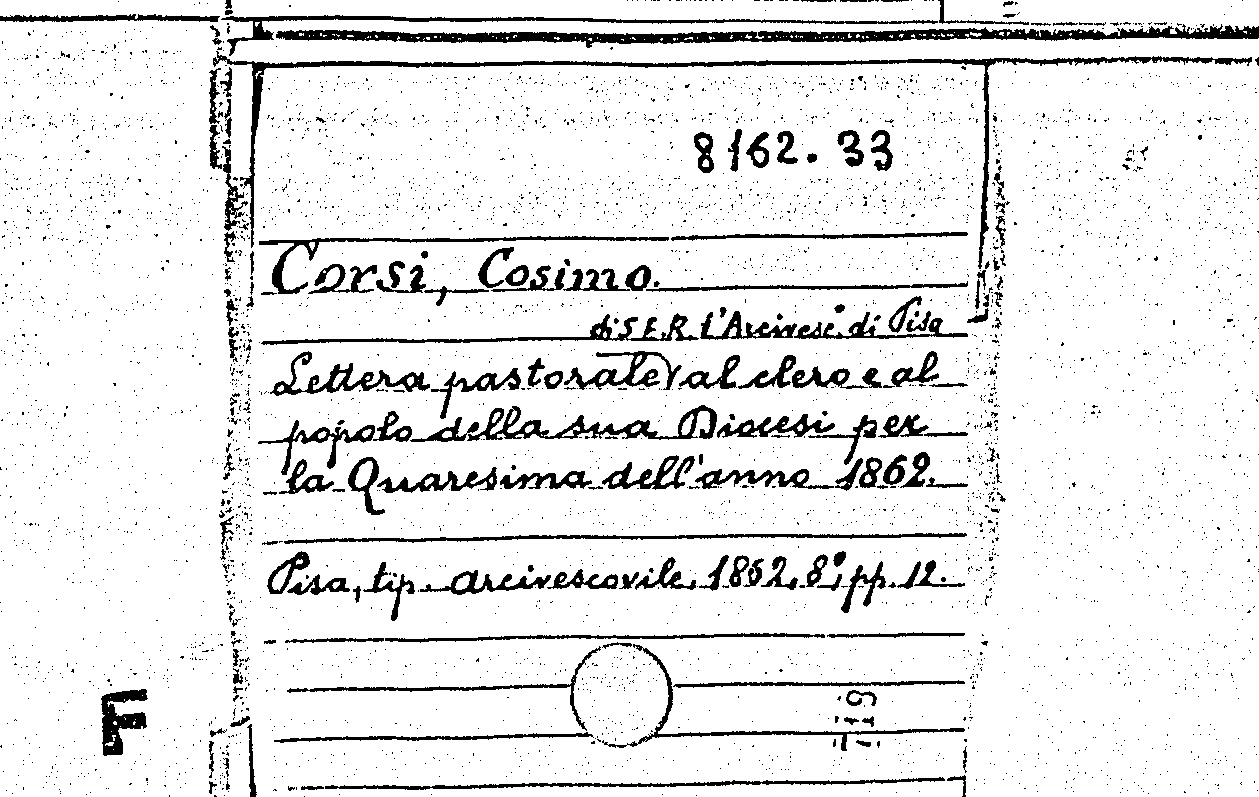 8162.33
Corsi, Cosimo.
di S.E.R. l'Arcivesc.° di Pisa
Lettera pastorale al clero e al
popolo della sua Diocesi per
la Quaresima dell'anno 1862.
Pisa, tip. arcivescovile, 1862, 8°, pp. 12.
F